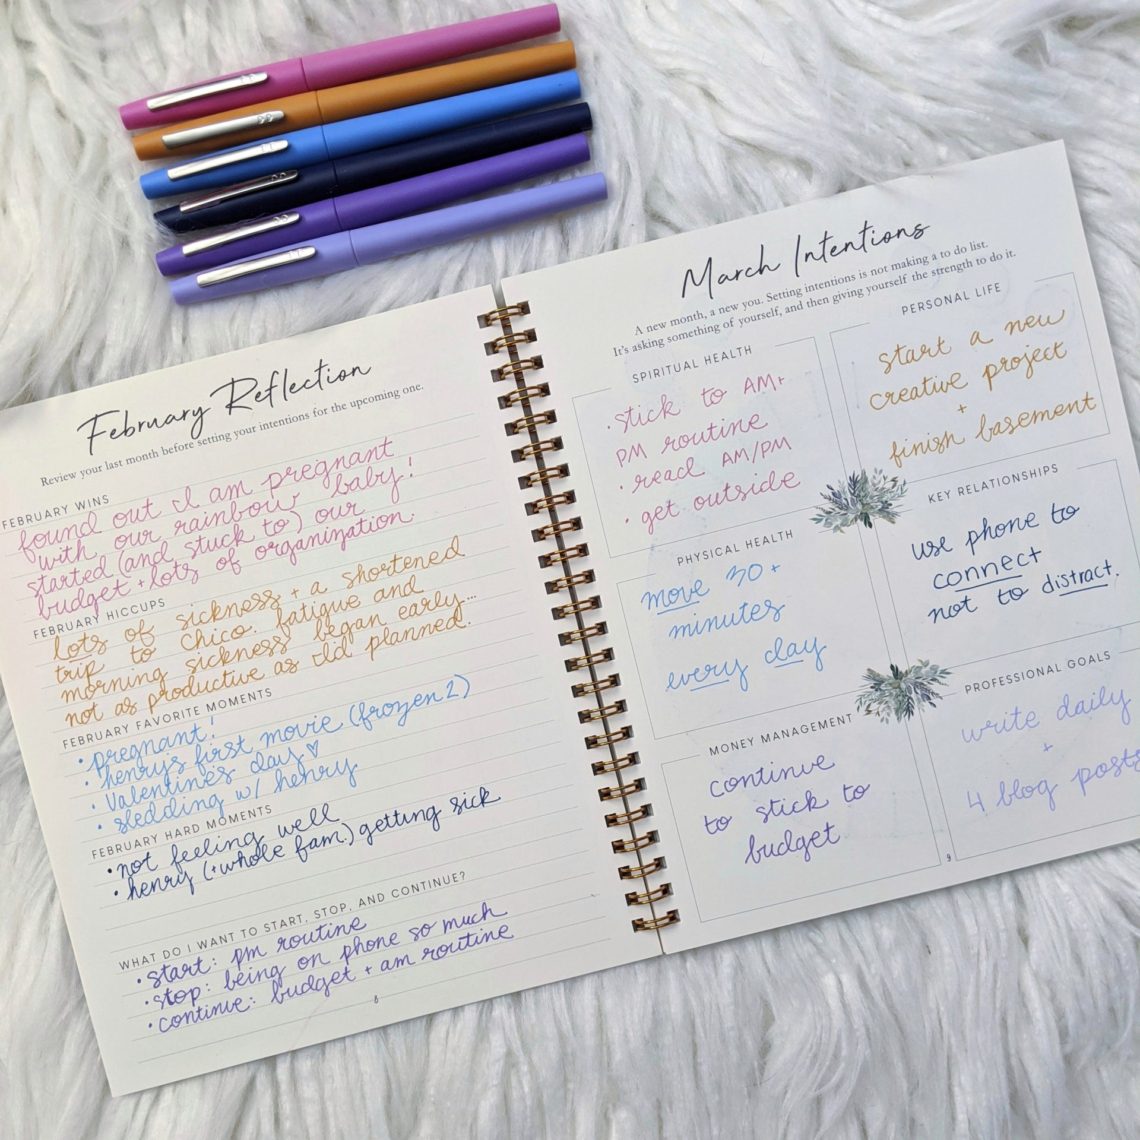 February Reflection
Review your last month before setting your intentions for the upcoming one.
FEBRUARY WINS
found out I am pregnant
with our rainbow baby!
started (and stuck to) our
budget + lots of organization.
FEBRUARY HICCUPS
lots of sickness + a shortened
trip to Chico. fatigue and
morning sickness began early...
not as productive as I'd planned.
FEBRUARY FAVORITE MOMENTS
• pregnant!
• henrys first movie (frozen 2)
• Valentines day ♡
• sledding w/ henry
FEBRUARY HARD MOMENTS
• not feeling well
• henry (+ whole fam.) getting sick
WHAT DO I WANT TO START, STOP, AND CONTINUE?
• start: pm routine
• stop: being on phone so much
• continue: budget + am routine
8
March Intentions
A new month, a new you. Setting intentions is not making a to do list.
It's asking something of yourself, and then giving yourself the strength to do it.
SPIRITUAL HEALTH
• stick to AM+
PM routine
• read AM/PM
• get outside
PERSONAL LIFE
start a new
creative project
+
finish basement
PHYSICAL HEALTH
move 30+
minutes
every day
KEY RELATIONSHIPS
use phone to
connect
not to distract.
MONEY MANAGEMENT
continue
to stick to
budget
PROFESSIONAL GOALS
write daily
+
4 blog posts
9